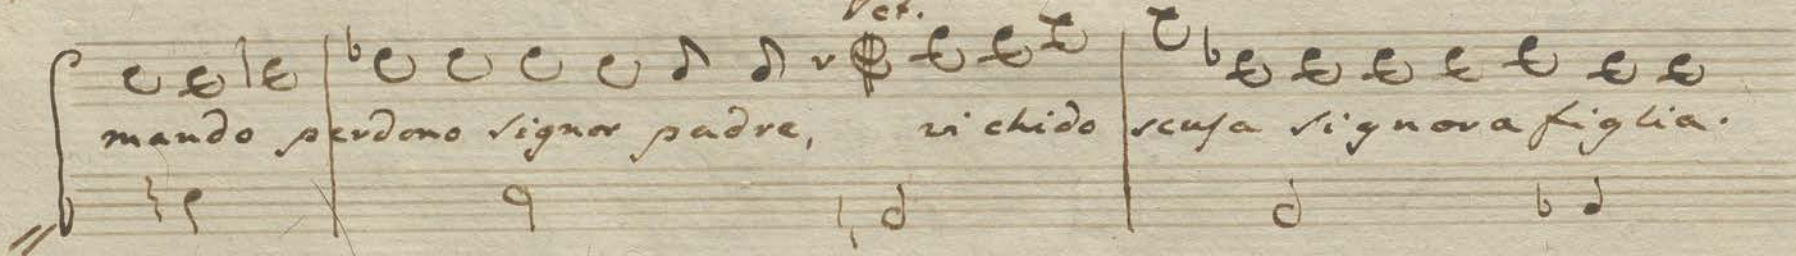 Vet.
mando perdono signor padre, vi chido scusa signora figlia.